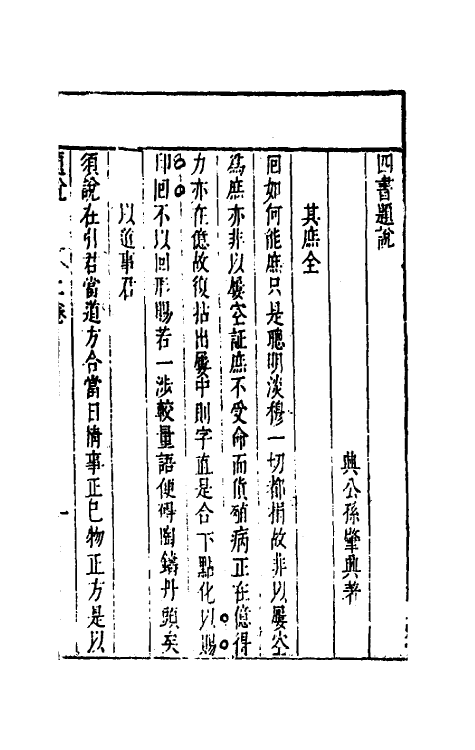 四書題說
典公孫肇興著
其庶全
回如何能庶只是聰明淡穆一切都捐故非以屢空
為庶亦非以屢空証庶不受命而貨殖病正在億得
力亦在億故復拈出屢中則字直是合下點化以賜
印回不以回形賜若一涉較量語便碍陶鑄丹頭矣
以道事君
須說在引君當道方合當日情事正己物正方是以
題說 上卷 一